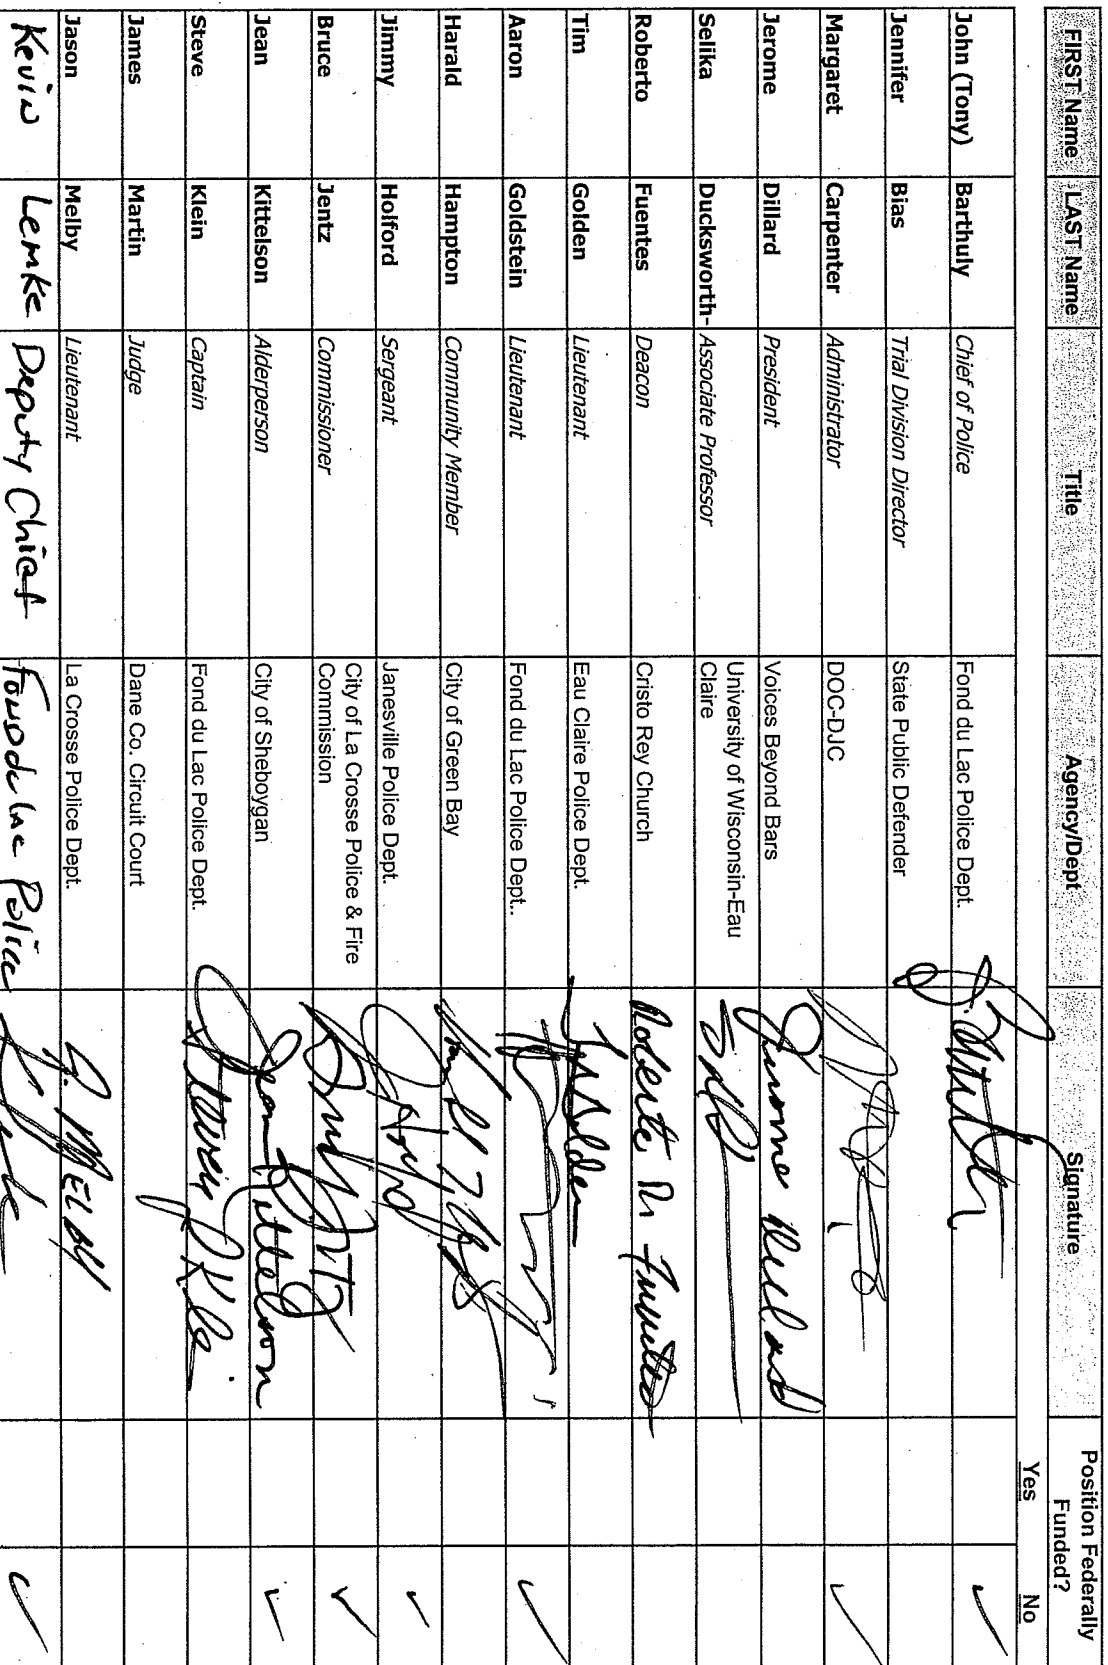 FIRST Name LAST Name Title Agency/Dept Signature Position Federally Funded?
Yes No
John (Tony) Barthuly Chief of Police Fond du Lac Police Dept.
Jennifer Bias Trial Division Director State Public Defender
Margaret Carpenter Administrator DOC-DJC
Jerome Dillard President Voices Beyond Bars Jerome Dillard
Selika Ducksworth- Associate Professor University of Wisconsin-Eau
Claire
Roberto Fuentes Deacon Cristo Rey Church Roberto Fuentes
Tim Golden Lieutenant Eau Claire Police Dept. T Golden
Aaron Goldstein Lieutenant Fond du Lac Police Dept..
Harald Hampton Community Member City of Green Bay
Jimmy Holford Sergeant Janesville Police Dept.
Bruce Jentz Commissioner City of La Crosse Police & Fire
Commission
Jean Kittelson Alderperson City of Sheboygan Jean Kittelson
Steve Klein Captain Fond du Lac Police Dept.
James Martin Judge Dane Co. Circuit Court
Jason Melby Lieutenant La Crosse Police Dept. J. MELBY
Kevin Lemke Deputy Chief Fond du Lac Police